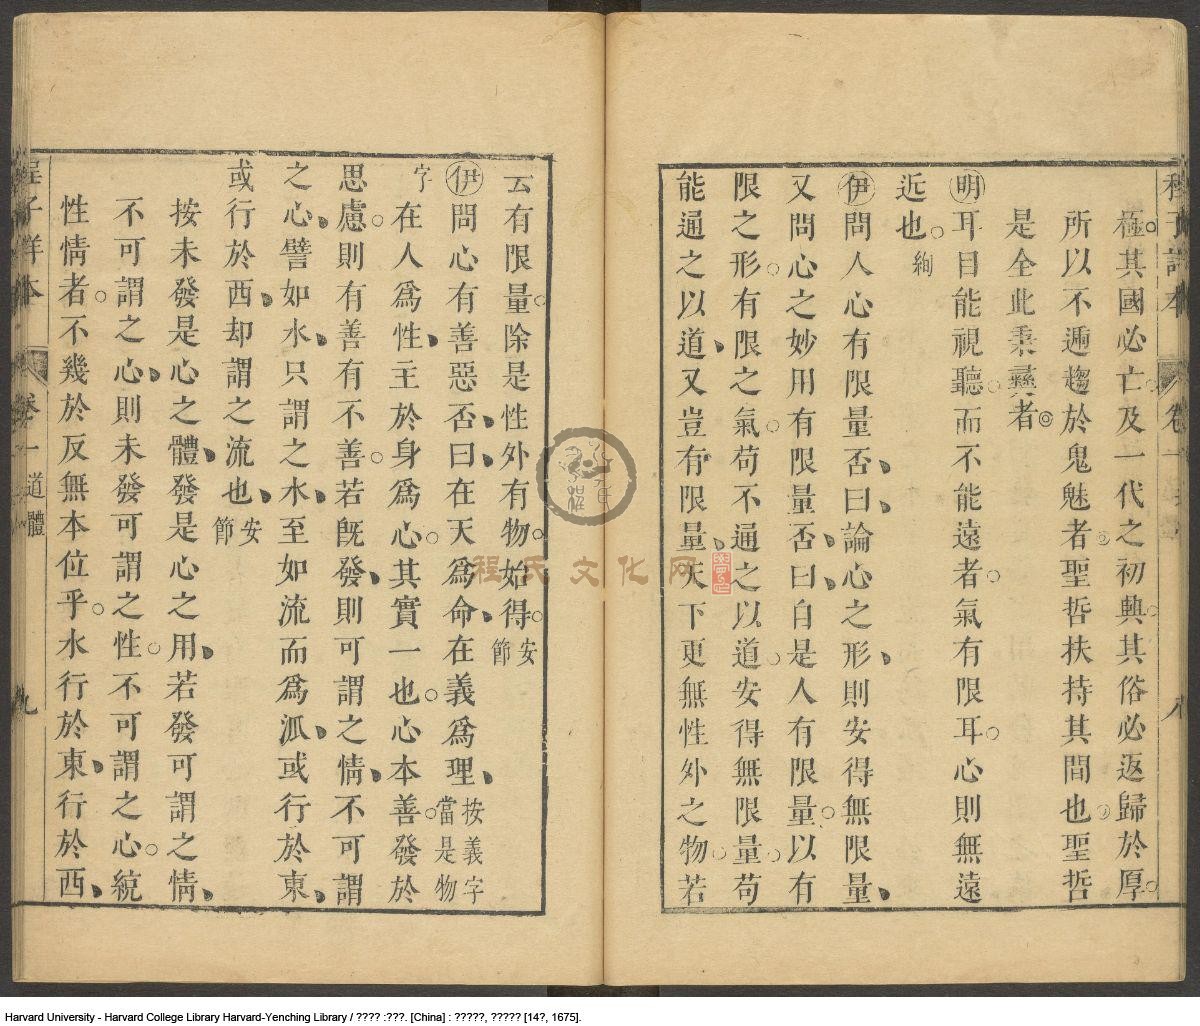 極其國必亡及一代之初興其俗必返歸於厚
所以不遁趨於鬼魅者聖哲扶持其間也聖哲
是全此秉彝者
明耳目能視聽而不能遠者氣有限耳心則無遠
近也絢
伊問人心有限量否曰論心之形則安得無限量
又問心之妙用有限量否曰自是人有限量以有
限之形有限之氣苟不通之以道安得無限量苟
能通之以道又豈有限量天下更無性外之物若
云有限量除是性外有物始得安節
伊問心有善惡否曰在天爲命在義爲理按義字當是物
字在人爲性主於身爲心其實一也心本善發於
思慮則有善有不善若旣發則可謂之情不可謂
之心譬如水只謂之水至如流而爲派或行於東
或行於西却謂之流也安節
按未發是心之體發是心之用若發可謂之情
不可謂之心則未發可謂之性不可謂之心統
性情者不幾於反無本位乎水行於東行於西
程子詳本 卷一 道體 九
程氏文化网
Harvard University - Harvard College Library Harvard-Yenching Library / ???? :???. [China] : ?????, ????? [14?, 1675].